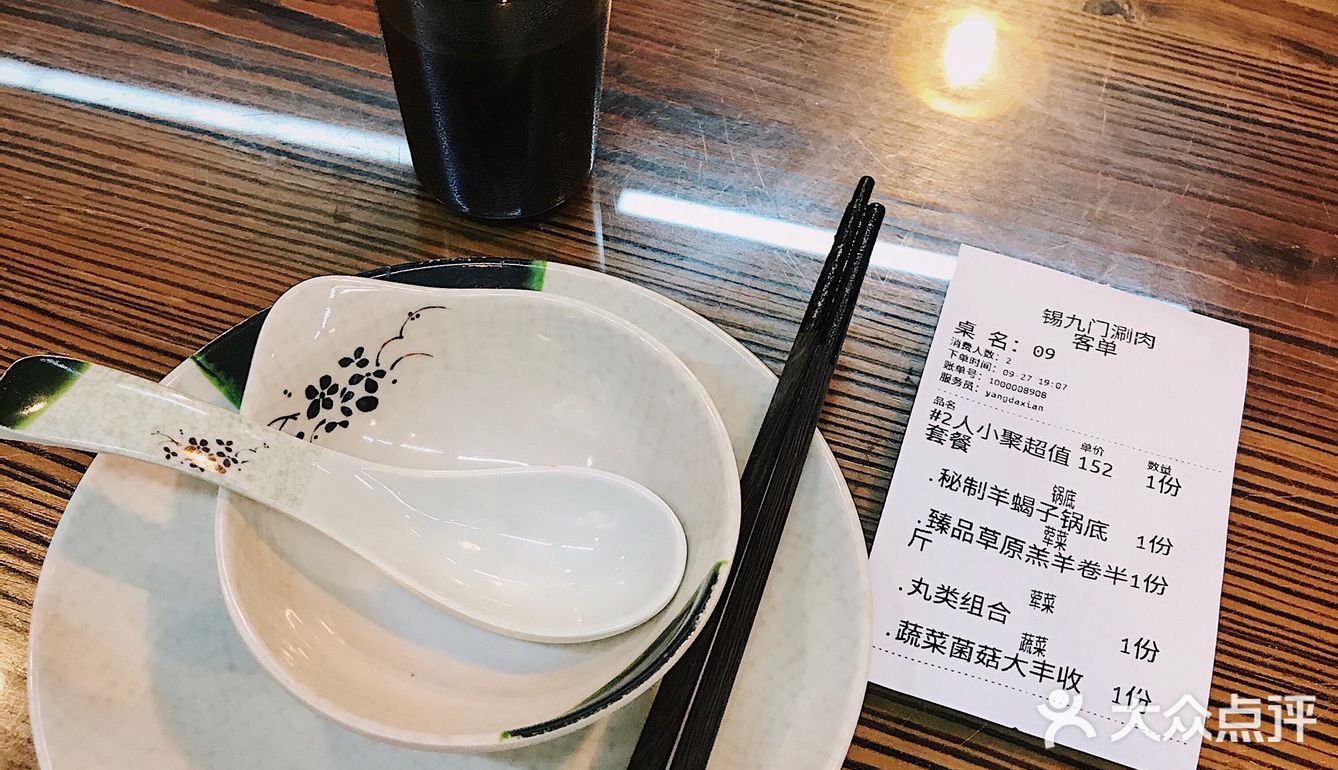 锡九门涮肉
客单
桌 名: 09
消费人数: 2
下单时间: 09-27 19:07
账单号: 1000008908
服务员: yangdaxian
品名 单价 数量
#2人小聚超值 152 1份
套餐
锅底
.秘制羊蝎子锅底 1份
荤菜
.臻品草原羔羊卷半 1份
斤
荤菜
.丸类组合 1份
蔬菜
.蔬菜菌菇大丰收 1份
大众点评